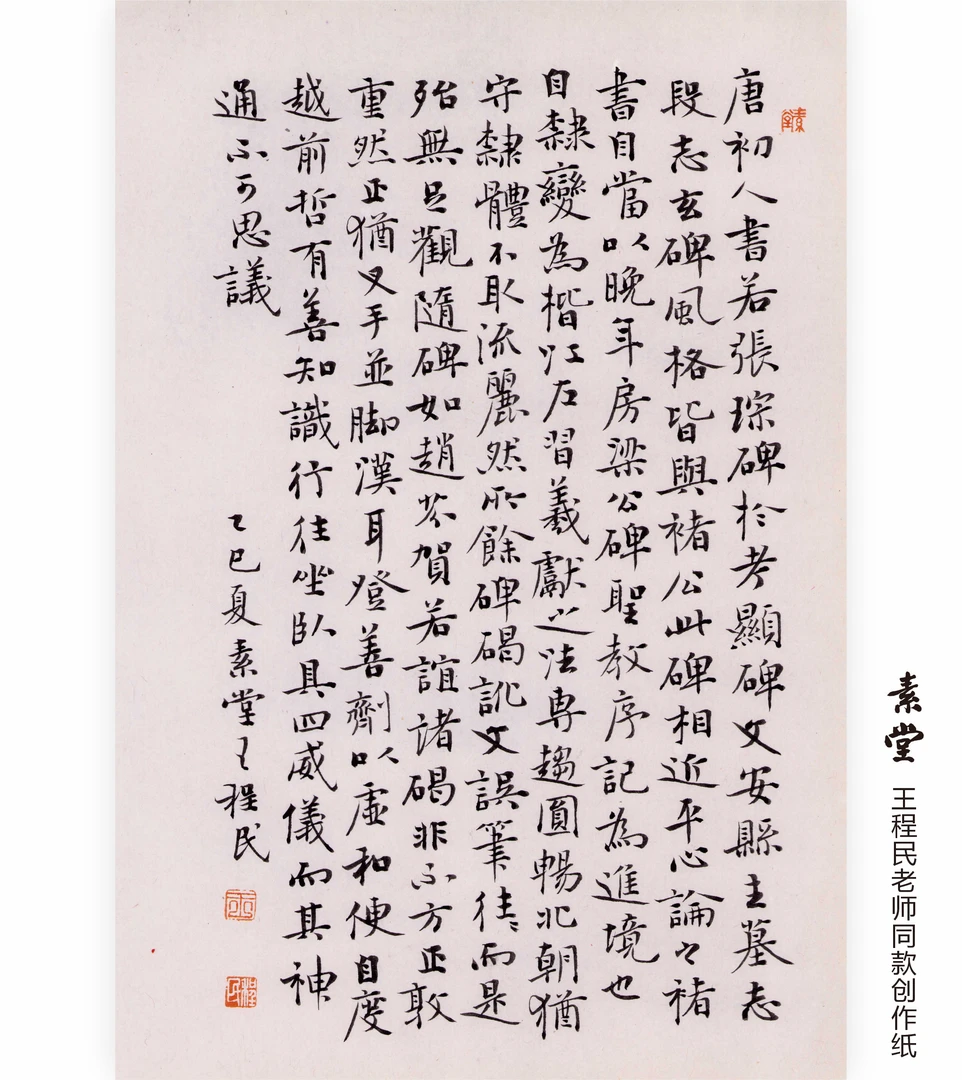 唐初人書若張琮碑於孝顯碑文安縣主墓志
段志玄碑風格皆與褚公此碑相近平心論之褚
書自當以晚年房梁公碑聖教序記為進境也
自隸變為楷江左習羲獻之法專趨圓暢北朝猶
守隸體不取流麗然所餘碑碣訛文誤筆往往而是
殆無足觀隨碑如趙芬賀若誼諸碣非不方正敦
重然正猶叉手並脚漢耳登善劑以虛和便自度
越前哲有善知識行住坐臥具四威儀而其神
通不可思議
乙巳夏素堂王程民
素堂
王程民老师同款创作纸